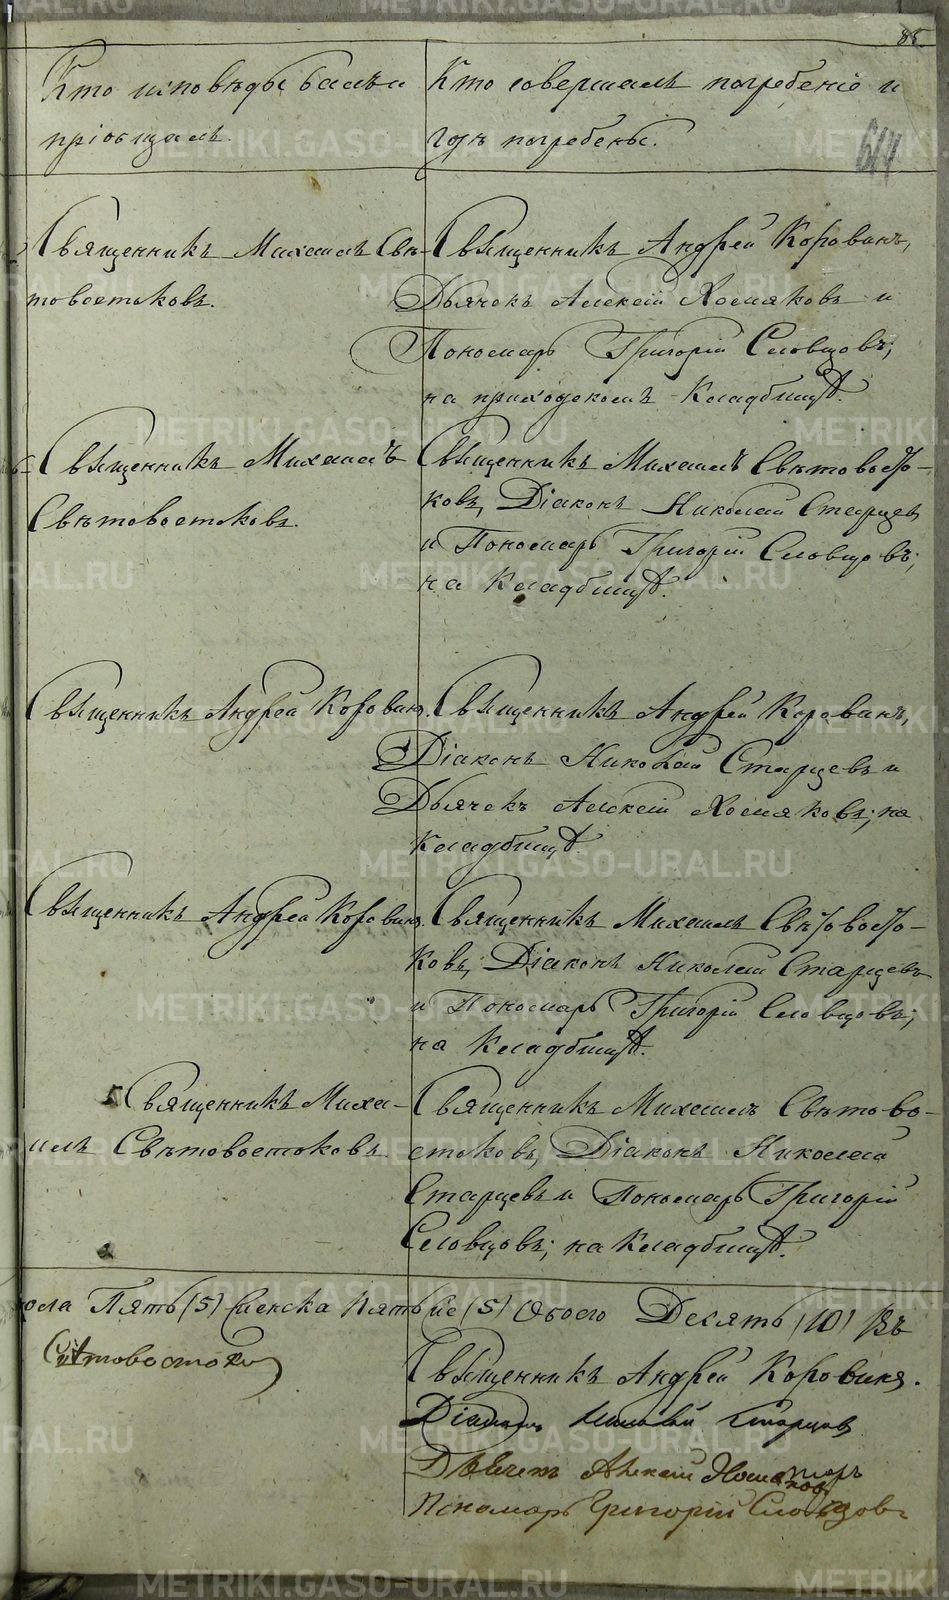 85
614
Кто исповѣдывалъ и
пріобщалъ.
Кто совершалъ погребеніе и
гдѣ погребены.
Священникъ Михаилъ Свѣ-
товостоковъ.
Священникъ Андрей Коровинъ,
Дьячокъ Алексій Хомяковъ и
Пономарь Григорій Словцовъ;
на приходскомъ Кладбищѣ.
Священникъ Михаилъ
Свѣтовостоковъ.
Священникъ Михаилъ Свѣтовосто-
ковъ, Діаконъ Николай Старцевъ
и Пономарь Григорій Словцовъ;
на Кладбищѣ.
Священникъ Андрей Коровинъ.
Священникъ Андрей Коровинъ,
Діаконъ Николай Старцевъ и
Дьячекъ Алексій Хомяковъ; на
Кладбищѣ.
Священникъ Андрей Коровинъ.
Священникъ Михаилъ Свѣтовосто-
ковъ, Діаконъ Николай Старцевъ
и Пономарь Григорій Словцовъ;
на Кладбищѣ.
Священникъ Михаи-
илъ Свѣтовостоковъ.
Священникъ Михаилъ Свѣтово-
стоковъ, Діаконъ Николай
Старцевъ и Пономарь Григорій
Словцовъ; на Кладбищѣ.
пола Пять (5) Женска Пять (5) Обоего Десять (10) Въ
Свѣтовостоков
Священникъ Андрей Коровинъ.
Діаконъ Николай Старцовъ
Дьячекъ Алексій Хомяковъ
Пономарь Григорій Словцовъ
METRIKI.GASO-URAL.RU